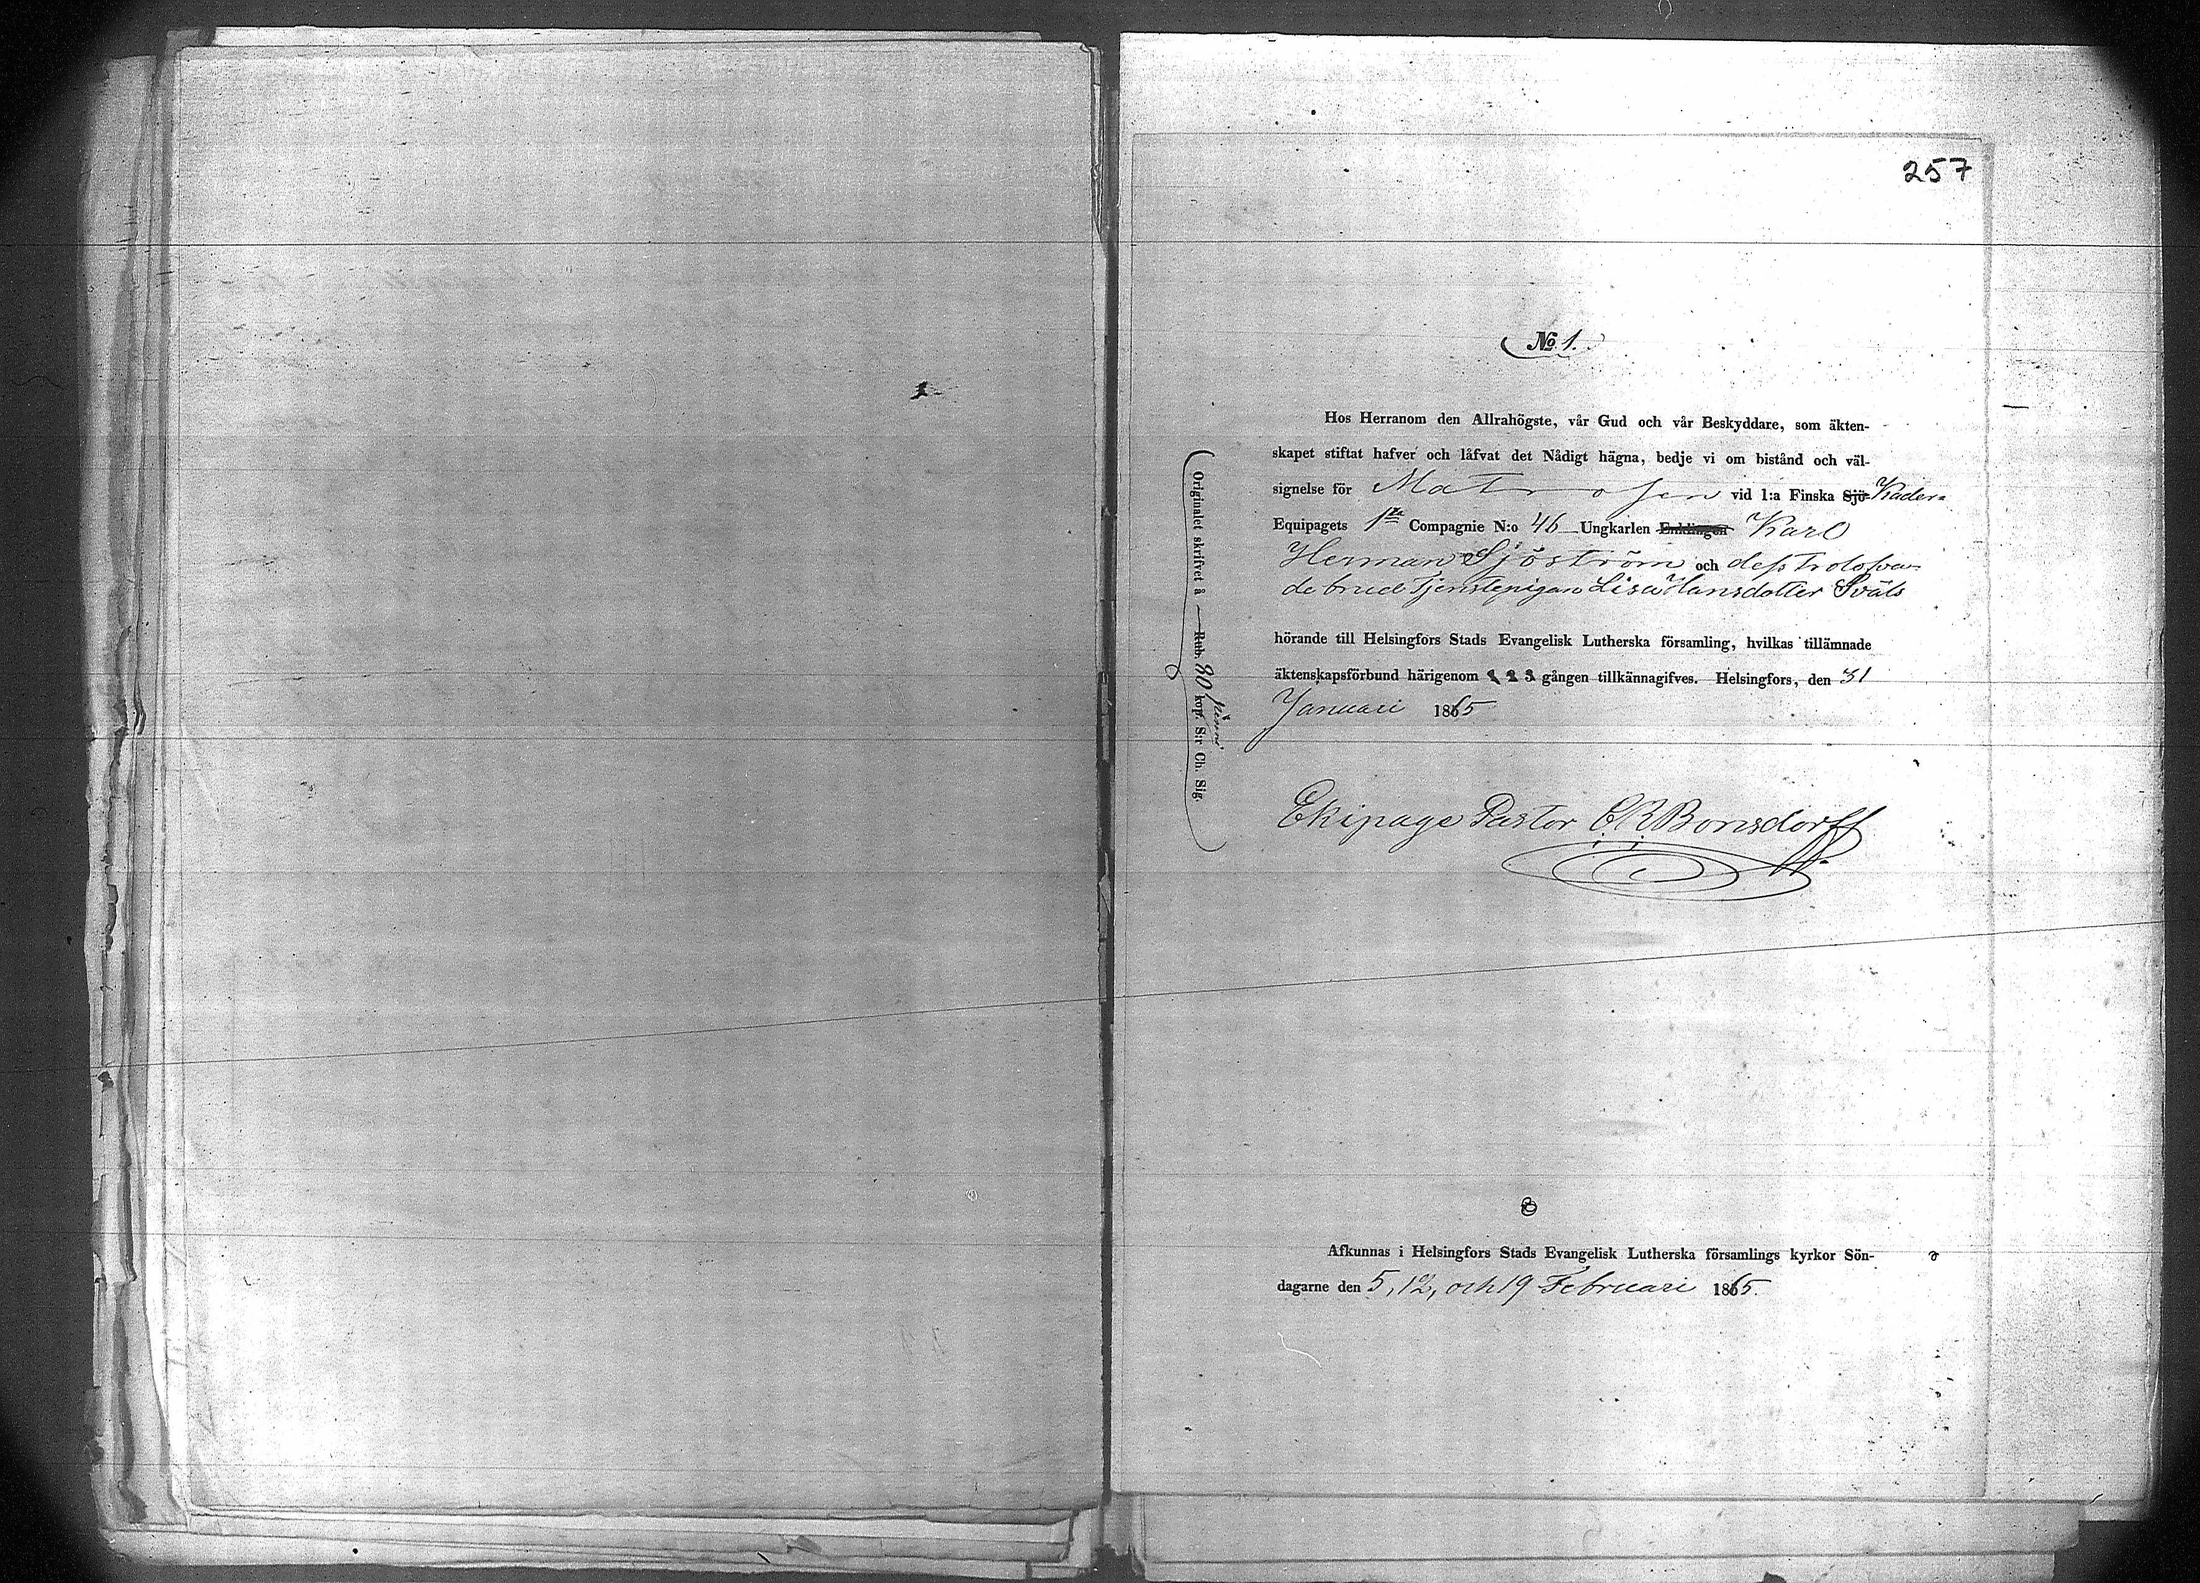 257
No 1.
Hos Herranom den Allrahögste, vår Gud och vår Beskyddare, som äkten-
skapet stiftat hafver och låfvat det Nådigt hägna, bedje vi om bistånd och väl-
signelse för Matrosen vid 1:a Finska Sjö- Kader=
Equipagets 1sta Compagnie N:o 46 Ungkarlen Enklingen Karl
Herman Sjöström och dess trolofva-
de brud Tjenstepigan Lisa Hansdotter Sväls
hörande till Helsingfors Stads Evangelisk Lutherska församling, hvilkas tillämnade
äktenskapsförbund härigenom 1 2 3 gången tillkännagifves. Helsingfors, den 31
Januari 1865
Ekipage Pastor C. R. Bonsdorff
Originalet skrifvet å Rub. 80 penni kop. S:r Ch. Sig.
Afkunnas i Helsingfors Stads Evangelisk Lutherska församlings kyrkor Sön-
dagarne den 5, 12, och 19 Februari 1865.